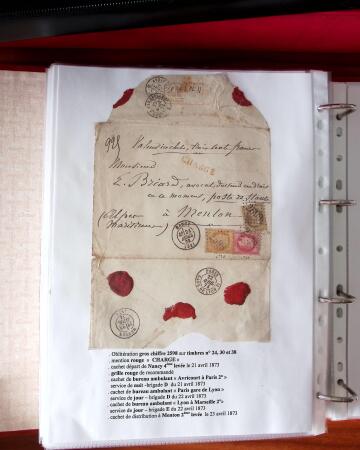 Valeur déclarée, trois cent francs
CHARGÉ
Monsieur
E. Briard, avocat,
en ce moment, poste restante
à Menton
NANCY
. Oblitération gros chiffre 2598 sur timbres n° 24, 30 et 38
. mention rouge « CHARGE »
. cachet départ de Nancy 4ème levée le 21 avril 1873
. grille rouge de recommandé
. cachet de bureau ambulant « Avricourt à Paris 2° »
service de nuit -brigade D du 21 avril 1873
. cachet de bureau ambulant « Paris gare de Lyon »
service de jour – brigade D du 22 avril 1873
. cachet de bureau ambulant « Lyon à Marseille 2°»
service de jour – brigade E du 22 avril 1873
. cachet de distribution à Menton 2ème levée le 23 avril 1873